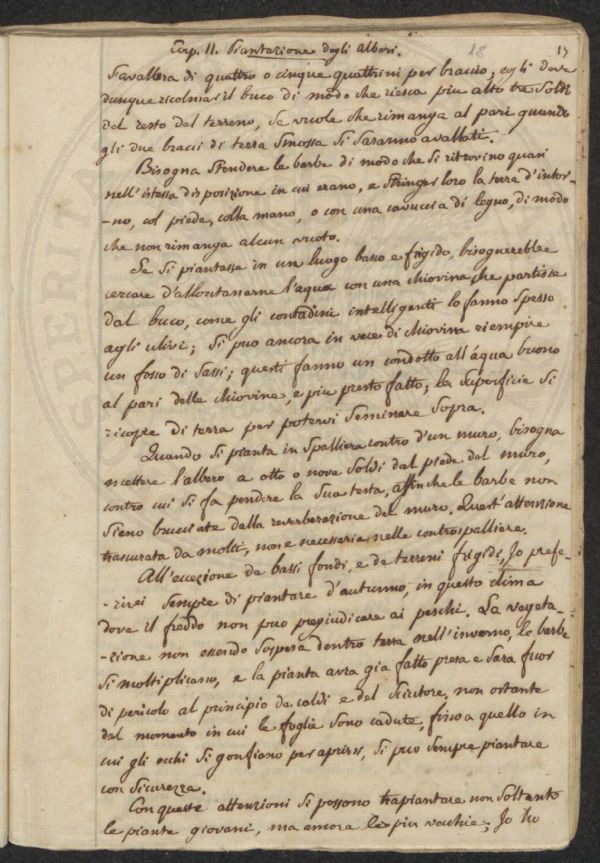 Cap. II. Piantazione degli Alberi. 18 17
s'avallera di quattro o cinque quattrini per braccio, egli deve
dunque ricolmar il buco di modo che riesca piu alto tre Soldi
del resto del terreno, se vuole che rimanga al pari quando
gli due bracci di terra smossa si saranno avallati.
Bisogna stendere le barbe di modo che si ritrovino quasi
nell'istessa disposizione in cui erano, e stringer loro la terra d'intor-
-no, col piede, colla mano, o con una cavuccia di legno, di modo
che non rimanga alcun vuoto.
Se si piantasse in un luogo basso e frigido, bisognerebbe
cercare d'allontanarne l'aqua con una chiovina che partisse
dal buco, come gli contadini intelligenti lo fanno spesso
agli ulivi; si può ancora in vece di chiovina riempire
un fosso di sassi; questi fanno un condotto all'aqua buono
al pari delle chiovine, e piu presto fatto; la superficie si
ricopre di terra per potervi seminare sopra.
Quando si pianta in spalliera contro d'un muro, bisogna
mettere l'albero a otto o nove soldi dal piede del muro,
contro cui si fa pendere la sua testa, affinche le barbe non
sieno bruciate dalla reverberazione del muro. Quest'attenzione
trascurata da molti, non e necessaria nelle controspalliere.
All'eccezione de bassi fondi, e de terreni frigidi, Io prefe-
-rirei sempre di piantare d'autunno, in questo clima
dove il freddo non puo pregiudicare ai peschi. La vegeta-
-zione non essendo sospesa dentro terra nell'inverno, le barbe
si moltiplicano, e la pianta avra gia fatto presa e sara fuor
di pericolo al principio de caldi e del sciutore, non ostante
dal momento in cui le foglie sono cadute, fino a quello in
cui gli occhi si gonfiano per aprirsi, si puo sempre piantare
con sicurezza.
Con queste attenzioni si possono trapiantare non soltanto
le piante giovani, ma ancora le piu vecchie; Io ho